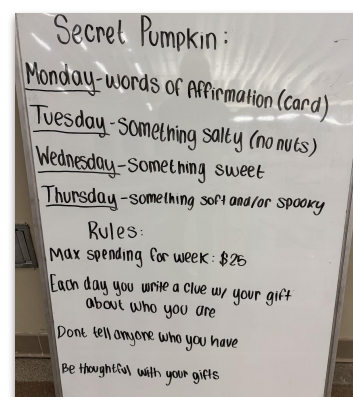 Secret Pumpkin:
Monday-words of Affirmation (card)
Tuesday-something salty (no nuts)
Wednesday-something sweet
Thursday-something soft and/or spooky
Rules:
Max spending for week: $25
Each day you write a clue w/ your gift
about who you are
Dont tell anyone who you have
Be thoughtful with your gifts